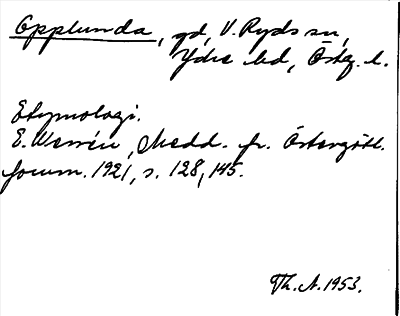 Opplunda, gd, V. Ryds sn,
Ydre hd, Östg. l.
Etymologi.
E. Wessén, Medd. fr. Östergötl.
fornm. 1921, s. 128, 145.
Th. A. 1953.